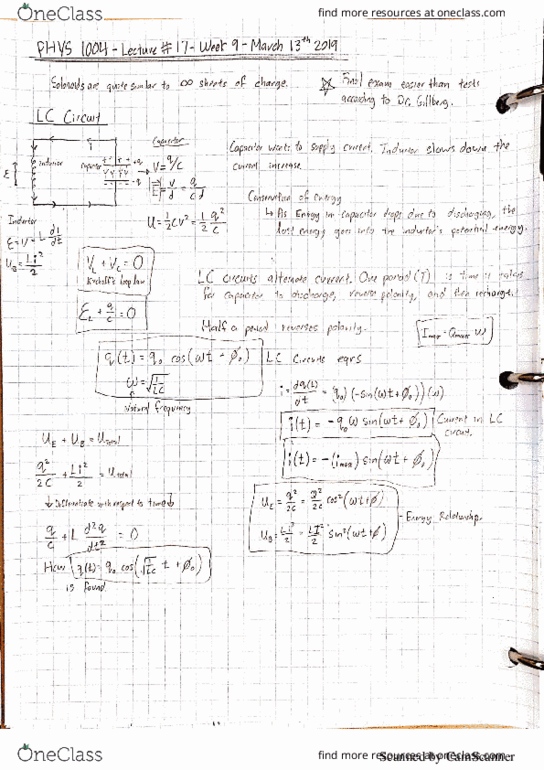 OneClass
find more resources at oneclass.com
PHYS 1004 - Lecture #17 - Week 9 - March 13th 2019
Solonoids are quite similar to ∞ sheets of charge.
☆ Final exam easier than tests
according to Dr. Gillberg.
LC Circuit
i
Inductor
capacitor
ε
Capacitor
V = q/C
|E| = V/d = q/cd
U = 1/2 CV² = 1/2 q²/C
Capacitor wants to supply current. Inductor slows down the
current increase.
Conservation of energy
↳ As Energy in capacitor drops due to discharging, the
lost energy goes into the inductor's potential energy.
Inductor
ε = V = L di/dt
U_B = Li²/2
V_L + V_C = 0
Kirchoff's loop law
ε_L + q/c = 0
LC circuits alternate current. One period (T) is time it takes
for capacitor to discharge, reverse polarity, and then recharge.
Half a period reverses polarity.
I_max = Q_max ω
q(t) = q₀ cos(ωt + φ₀)
LC Circuits eqns
ω = √(1/LC)
Natural frequency
i = dq(t)/dt = q₀ (-sin(ωt + φ₀))(ω)
i(t) = -q₀ω sin(ωt + φ₀)
Current in LC
circuit.
i(t) = -(i_max) sin(ωt + φ₀)
U_E + U_B = U_total
q²/2C + Li²/2 = U_total
↓ Differentiate with respect to time ↓
q/c + L d²q/dt² = 0
How q(t) = q₀ cos(√(1/LC) t + φ₀)
is found.
U_E = q²/2c = Q²/2c cos²(ωt + φ)
U_B = Li²/2 = LI²/2 sin²(ωt + φ)
- Energy Relationship.
OneClass
find more resources at oneclass.com
Scanned by CamScanner